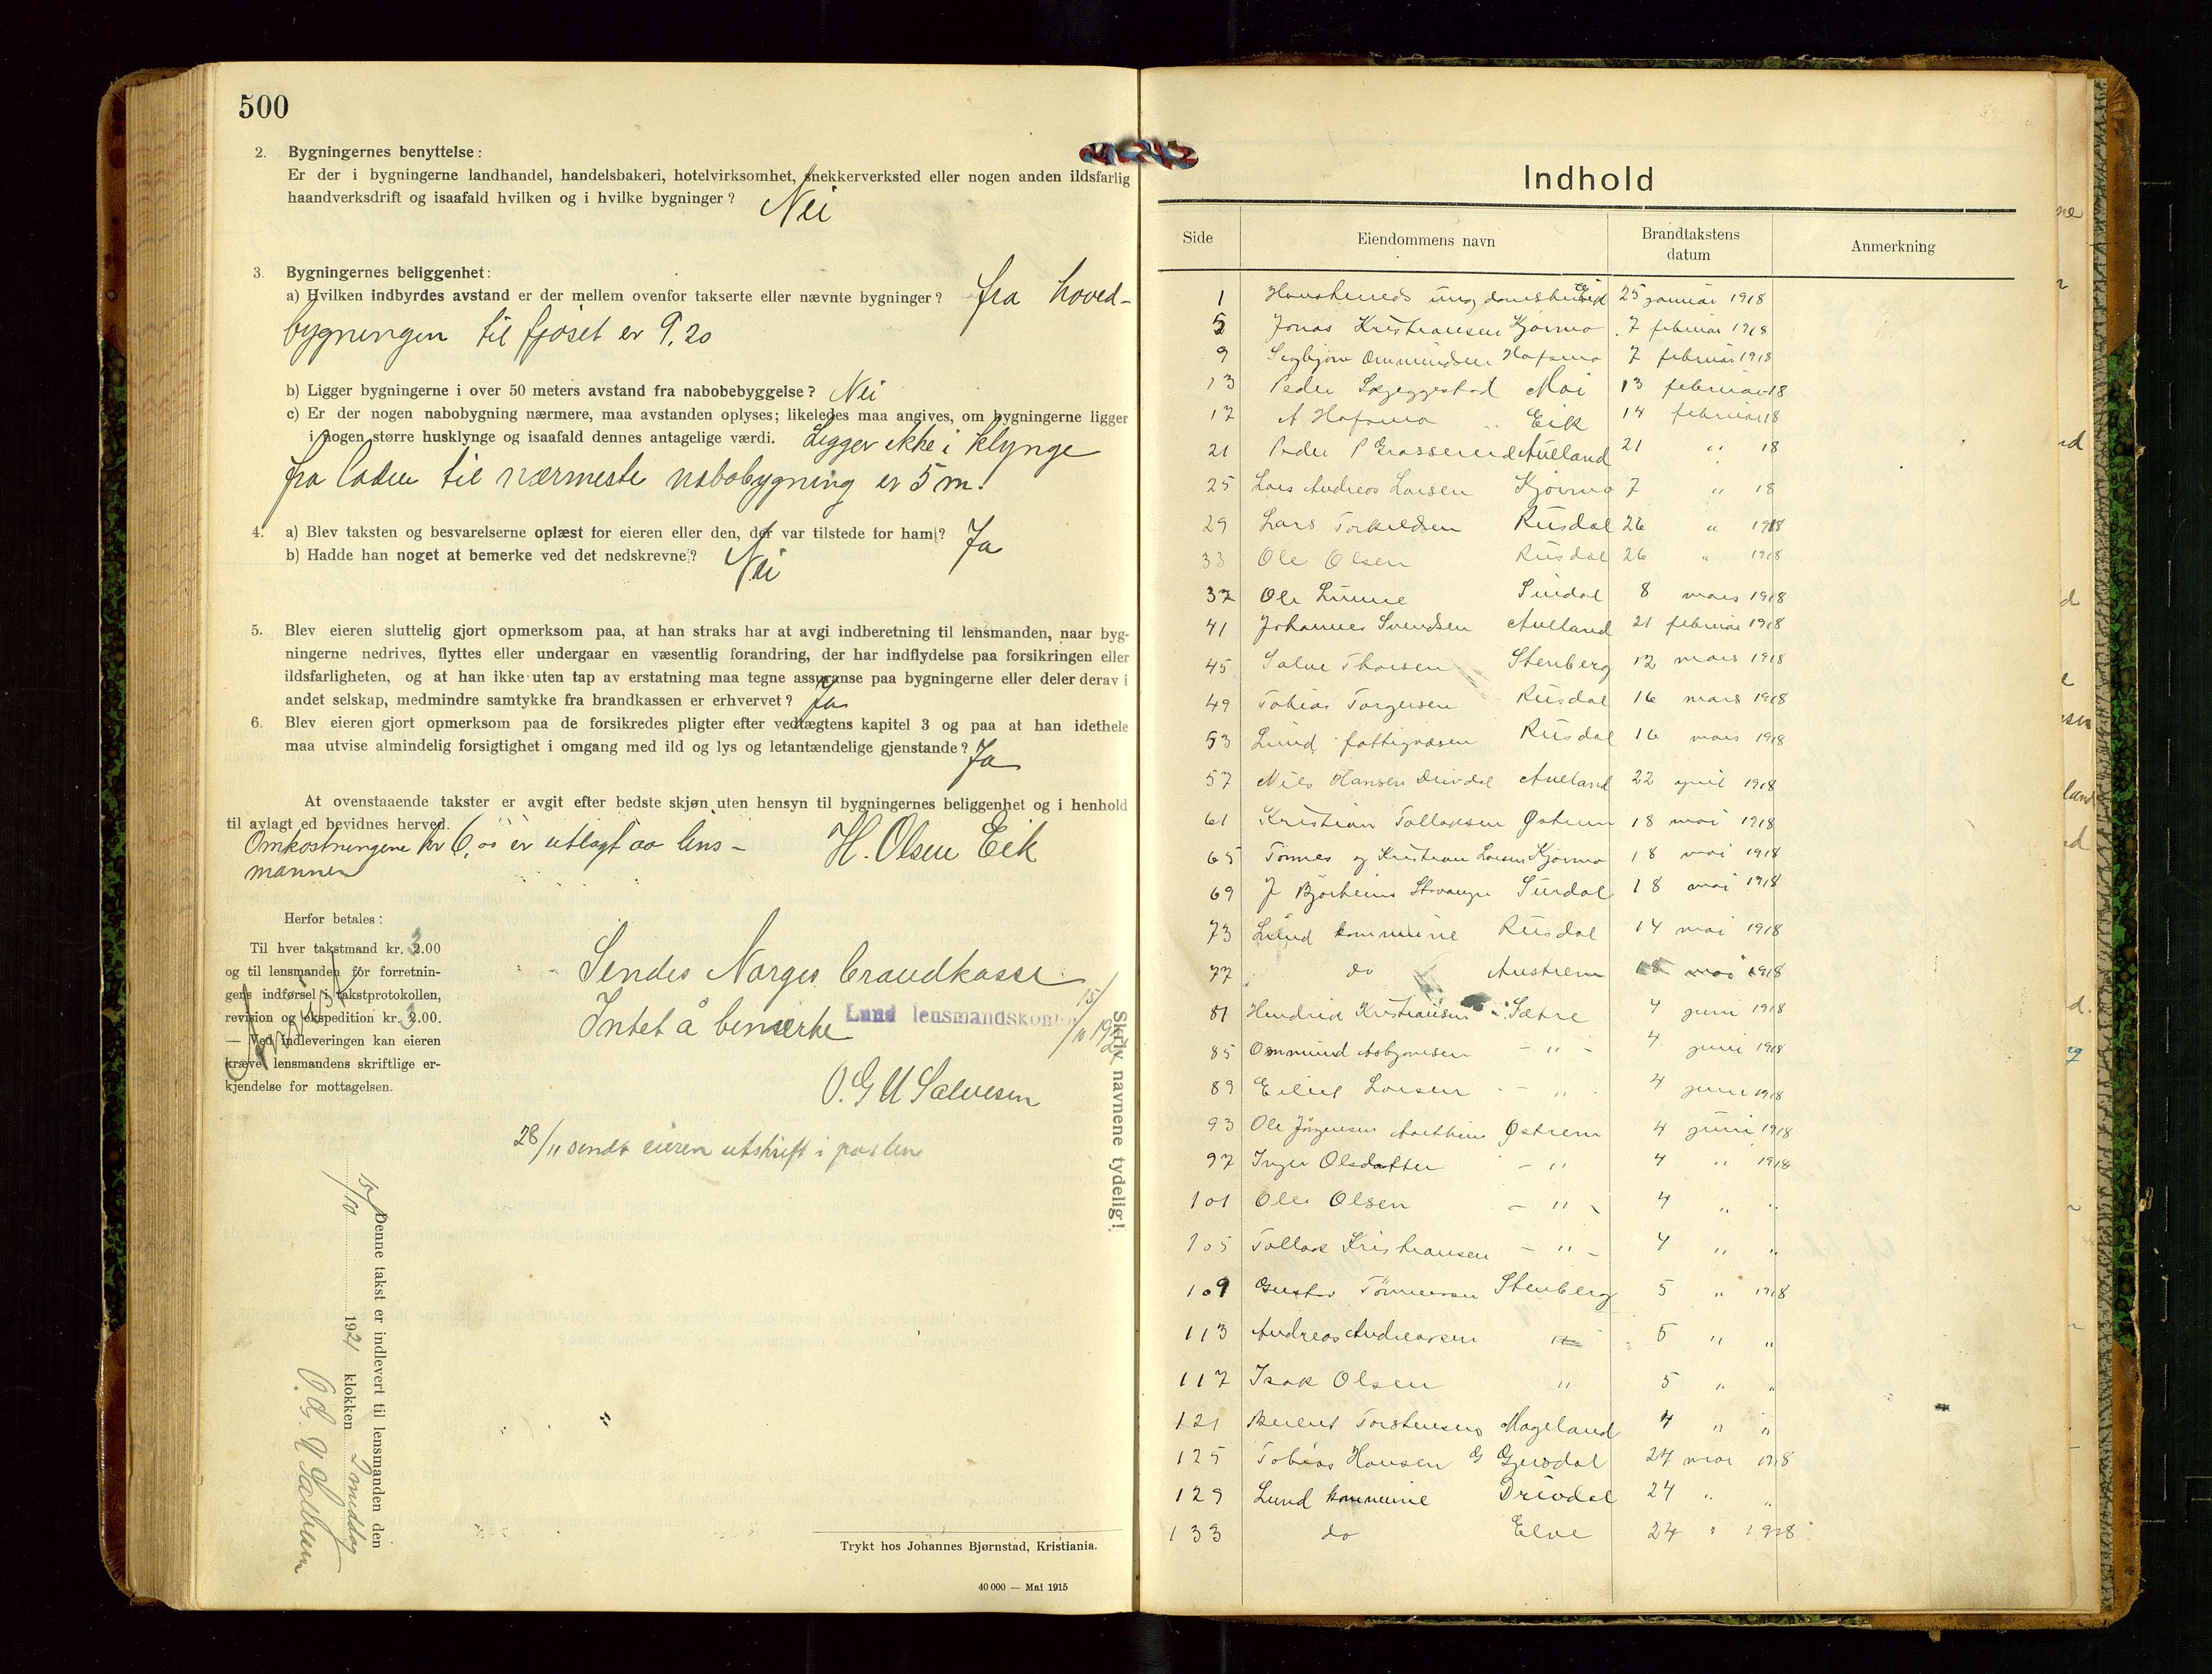 500
2. Bygningernes benyttelse:
Er der i bygningerne landhandel, handelsbakeri, hotelvirksomhet, snekkerverksted eller nogen anden ildsfarlig
haandverksdrift og isaafald hvilken og i hvilke bygninger? Nei
3. Bygningernes beliggenhet:
a) Hvilken indbyrdes avstand er der mellem ovenfor takserte eller nævnte bygninger? fra hoved-
bygningen til fjøset er 9,20
b) Ligger bygningerne i over 50 meters avstand fra nabobebyggelse? Nei
c) Er der nogen nabobygning nærmere, maa avstanden oplyses; likeledes maa angives, om bygningerne ligger
i nogen større husklynge og isaafald dennes antagelige værdi. Ligger ikke i klynge
fra laden til nærmeste nabobygning er 5 m.
4. a) Blev taksten og besvarelserne oplæst for eieren eller den, der var tilstede for ham? Ja
b) Hadde han noget at bemerke ved det nedskrevne? Nei
5. Blev eieren sluttelig gjort opmerksom paa, at han straks har at avgi indberetning til lensmanden, naar byg-
ningerne nedrives, flyttes eller undergaar en væsentlig forandring, der har indflydelse paa forsikringen eller
ildsfarligheten, og at han ikke uten tap av erstatning maa tegne assuranse paa bygningerne eller deler derav i
andet selskap, medmindre samtykke fra brandkassen er erhvervet? Ja
6. Blev eieren gjort opmerksom paa de forsikredes pligter efter vedtægtens kapitel 3 og paa at han idethele
maa utvise almindelig forsigtighet i omgang med ild og lys og letantændelige gjenstande? Ja
At ovenstaaende takster er avgit efter bedste skjøn uten hensyn til bygningernes beliggenhet og i henhold
til avlagt ed bevidnes herved.
Omkostningene kr 6,00 er utlagt av lens-
mannen
H. Olsen Eik
Herfor betales:
Til hver takstmand kr. 3.00
og til lensmanden for forretnin-
gens indførsel i takstprotokollen,
revision og ekspedition kr. 3.00.
— Ved indleveringen kan eieren
kræve lensmandens skriftlige er-
kjendelse for mottagelsen.
Sendes Norges brandkasse
Intet å bemerke Lund lensmandskontor 15/10 1921
O. G. U Salvesen
28/11 sendt eieren utskrift i posten
Skriv navnene tydelig!
Denne takst er indlevert til lensmanden den
15/10 1921 klokken middag
Trykt hos Johannes Bjørnstad, Kristiania.
40 000 — Mai 1915
Indhold
Side Eiendommens navn Brandtakstens datum Anmerkning
1 ungdoms Eik 25 januar 1918
5 Jonas Kristiansen Kjørmo 7 februar 1918
9 Ommundsen Hafsmo 7 februar 1918
13 Peder Skjeggestad Moi 13 februar 18
17 A Hafsmo Eik 14 februar 18
21 Peder P Aulland 21 " 18
25 Lars Andreas Larsen Kjørmo 7 " 18
29 Lars Torkildsen Rusdal 26 " 1918
33 Ole Olsen Rusdal 26 " 1918
37 Ole Surdal 8 mars 1918
41 Johannes Svendsen Aulland 21 februar 1918
45 Salve Thorsen Stenberg 12 mars 1918
49 Tobias Torgersen Rusdal 16 mars 1918
53 Lund fattigvæsen Rusdal 16 mars 1918
57 Nils Hansen Drivdal Aulland 22 april 1918
61 Kristian Tollaksen Østrem 18 mai 1918
65 Tønnes og Kristian Larsen Kjørmo 18 mai 1918
69 J Bjørheim Stavanger Surdal 18 mai 1918
73 Lund kommune Rusdal 14 mai 1918
77 do Austrem 18 mai 1918
81 Hendrik Kristiansen Sætre 4 juni 1918
85 Ommund Asbjørnsen - " - 4 juni 1918
89 Eilert Larsen - " 4 juni 1918
93 Ole Jörgensen Østrem 4 juni 1918
97 Inger Olsdatter - " 4 " 1918
101 Olle Olsen - " - 4 " "
105 Tollak Kristiansen - " - 4 " "
109 Gustav Tönnessen Stenberg 5 " 1918
113 Andreas Andreassen " 5 " "
117 Isak Olsen " 5 " "
121 Berent Torstensen Mageland 4 " "
125 Tobias Hansen G Gjersdal 24 mai 1918
129 Lund kommune Drivdal 24 " "
133 do Elve 24 " 1918